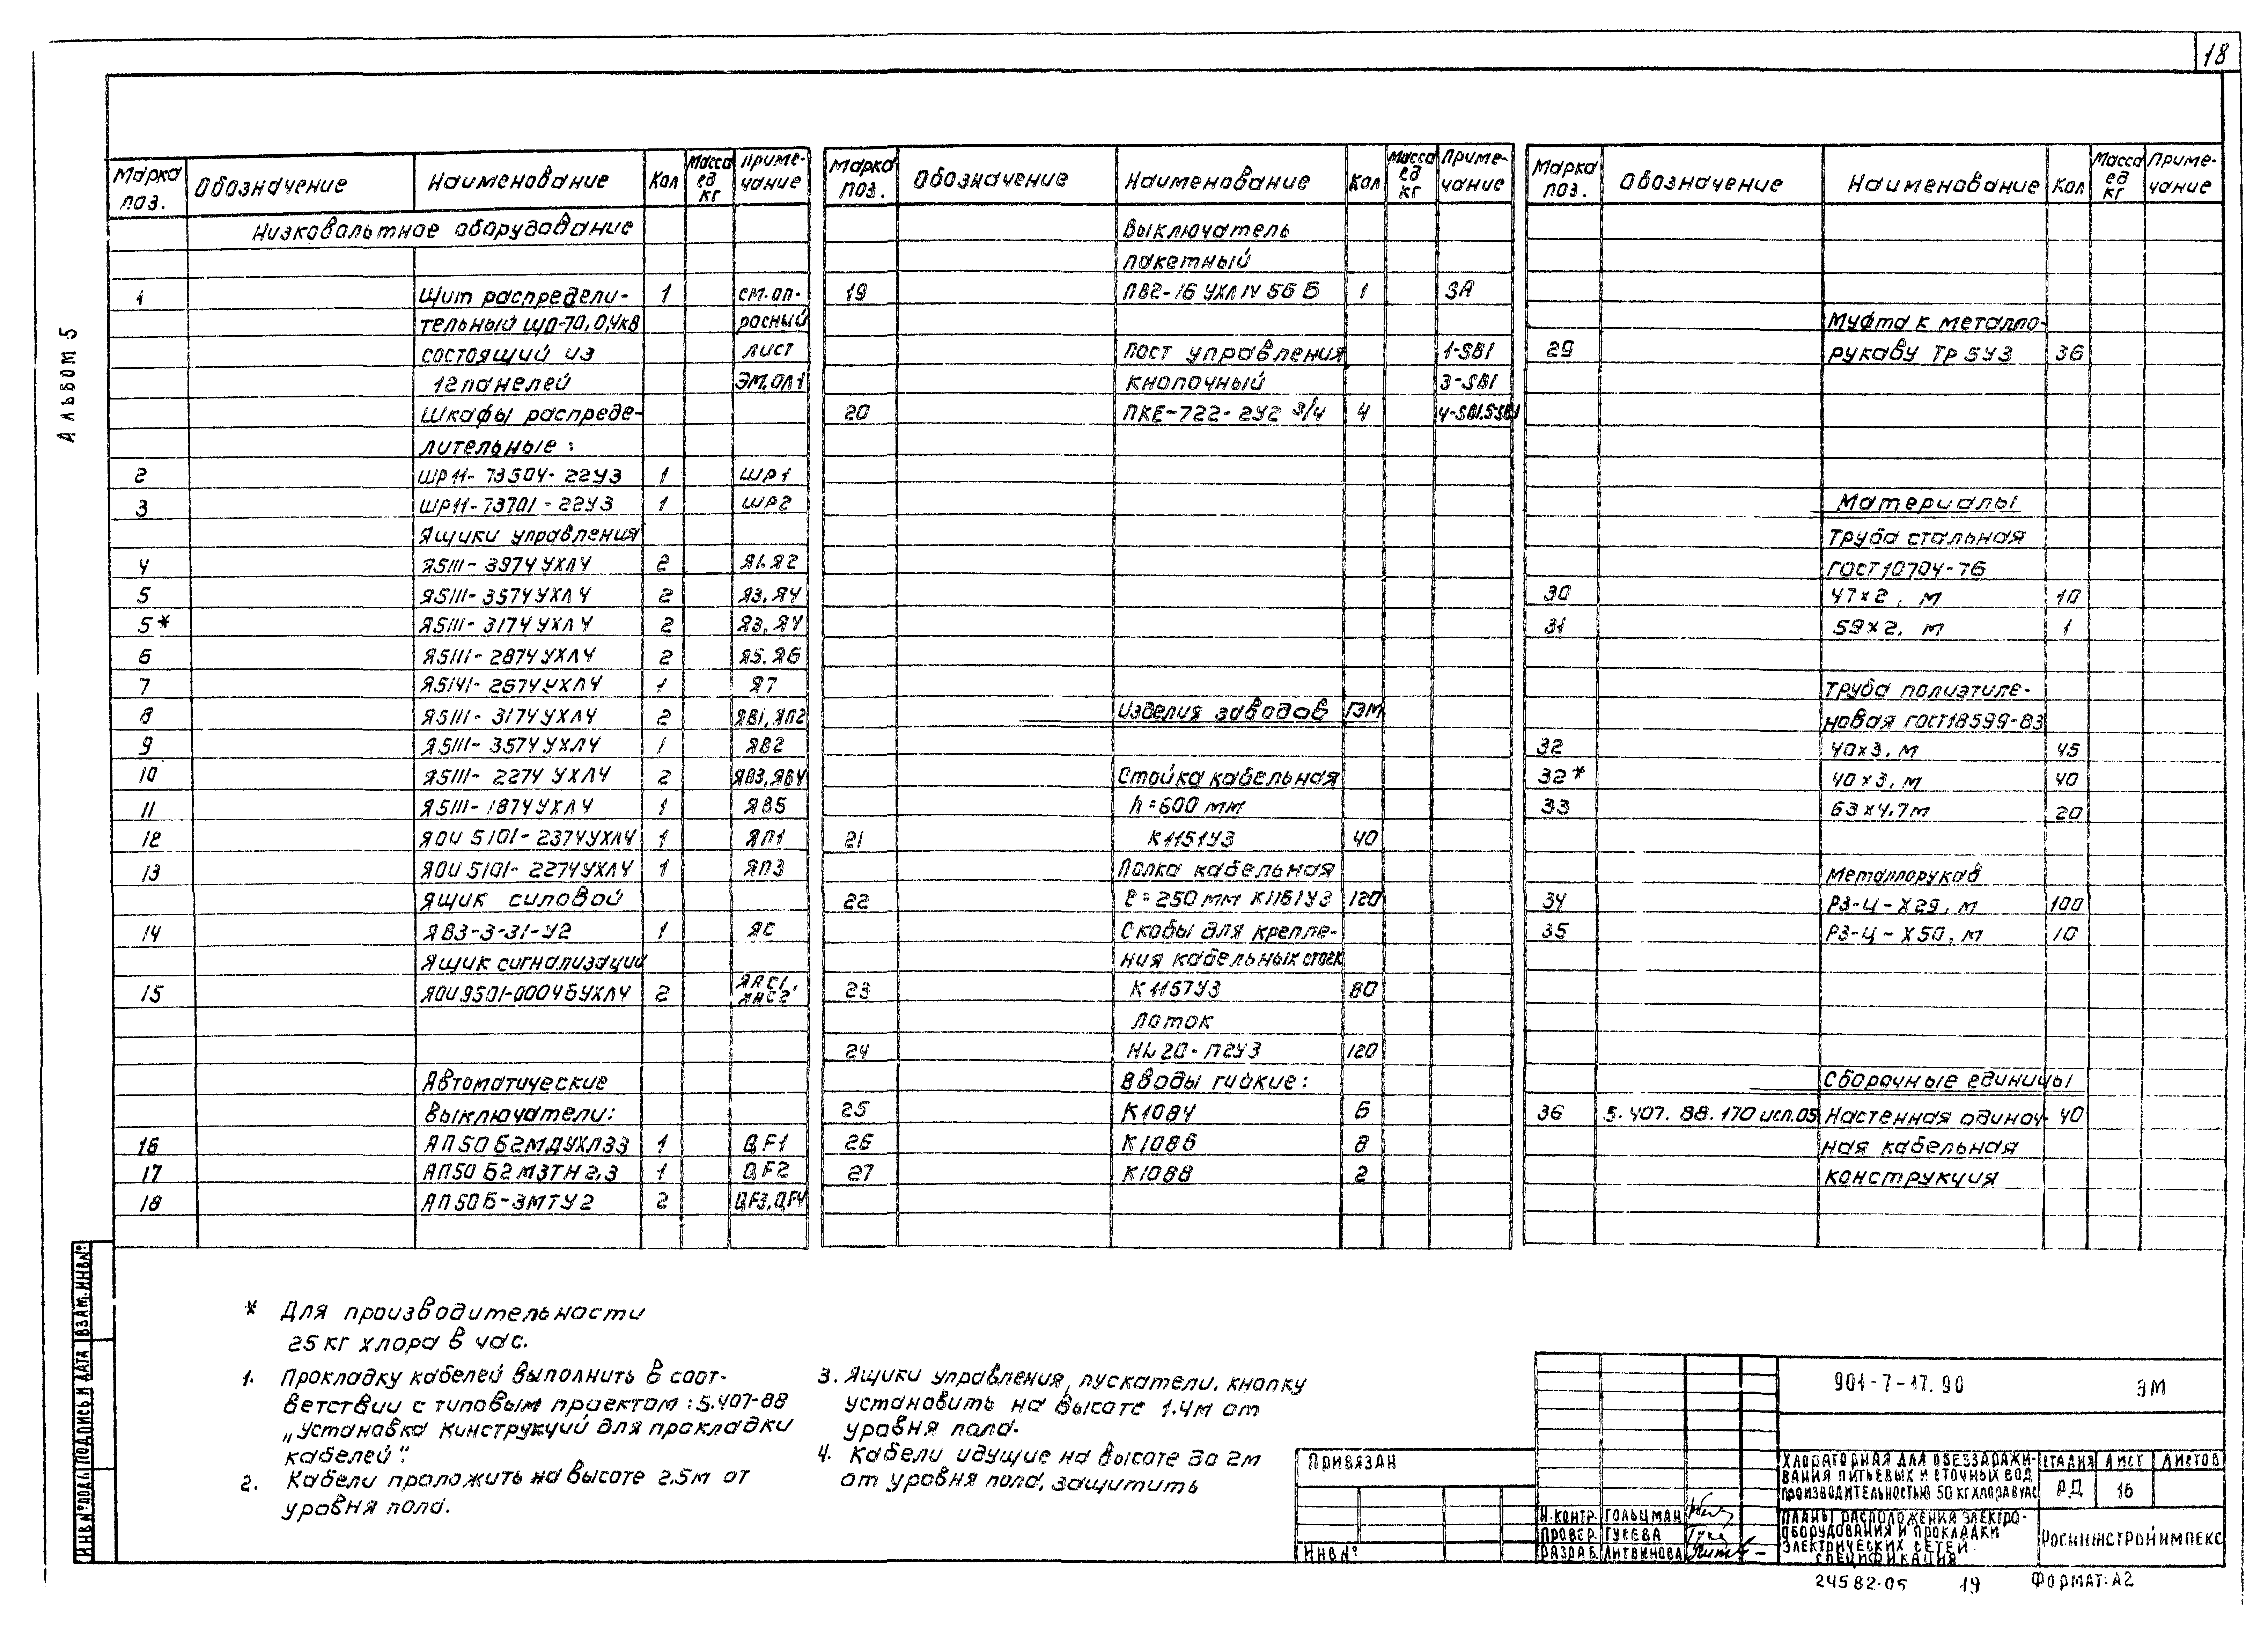 18
Альбом 5
Марка поз. Обозначение Наименование Кол Масса ед кг Примечание
Низковольтное оборудование
1 Щит распредели- 1 см.оп-
тельный ЩО-70, 0,4кВ росный
состоящий из лист
12 панелей ЭМ.ОЛ1
Шкафы распреде-
лительные:
2 ШР11-73504-22У3 1 ШР1
3 ШР11-73701-22У3 1 ШР2
Ящики управления
4 Я5111-3974УХЛ4 2 Я1.Я2
5 Я5111-3574УХЛ4 2 Я3.Я4
5* Я5111-3174УХЛ4 2 Я3,Я4
6 Я5111-2874УХЛ4 2 Я5.Я6
7 Я5141-2674УХЛ4 1 Я7
8 Я5111-3174УХЛ4 2 ЯВ1,ЯП2
9 Я5111-3574УХЛ4 1 ЯВ2
10 Я5111-2274УХЛ4 2 ЯВ3,ЯВ4
11 Я5111-1874УХЛ4 1 ЯВ5
12 ЯОИ 5101-2374УХЛ4 1 ЯП1
13 ЯОИ 5101-2274УХЛ4 1 ЯП3
Ящик силовой
14 ЯВЗ-3-31-У2 1 ЯС
Ящик сигнализации
15 ЯОИ9501-0004БУХЛ4 2
Автоматические
выключатели:
16 АП50Б2МДУХЛ33 1 QF1
17 АП50Б2М3ТН2,3 1 QF2
18 АП50Б-3МТУ2 2 QF3,QF4
Марка поз. Обозначение Наименование Кол Масса ед кг Примечание
Выключатель
пакетный
19 ПВ2-16 УХЛ IV 56 Б 1 SA
Пост управления 1-SB1
кнопочный 3-SB1
20 ПКЕ-722-2У2 3/4 4 4-SB1.5-SB1
Изделия заводов ГЭМ
Стойка кабельная
h=600 мм
21 К1151У3 40
Полка кабельная
22 ℓ=250мм К1161У3 120
Скобы для крепле-
ния кабельных стоек
23 К1157У3 80
Лоток
24 НL20-П2У3 120
Вводы гибкие:
25 К1084 6
26 К1086 8
27 К1088 2
Марка поз. Обозначение Наименование Кол Масса ед кг Примечание
Муфта к металло-
29 рукаву Тр 5У3 36
Материалы
Труба стальная
ГОСТ10704-76
30 47×2, м 10
31 59×2, м 1
Труба полиэтиле-
новая ГОСТ18599-83
32 40×3, м 45
32* 40×3, м 40
33 63×4,7м 20
Металлорукав
34 Р3-Ц-Х29, м 100
35 Р3-Ц-Х50, м 10
Сборочные единицы
36 5.407.88.170 исп.05 Настенная одиноч- 40
ная кабельная
конструкция
* Для производительности
25 кг хлора в час.
1. Прокладку кабелей выполнить в соот-
ветствии с типовым проектом: 5.407-88
„Установка конструкций для прокладки
кабелей".
2. Кабели проложить на высоте 2.5м от
уровня пола.
3. Ящики управления, пускатели, кнопку
установить на высоте 1.4м от
уровня пола.
4. Кабели идущие на высоте до 2м
от уровня пола, защитить
Инв № подл Подпись и дата Взам. инв №
Привязан
Инв №
Н.контр. Гольцман
Провер. Гусева
Разраб. Литвинова
901-7-17.90 ЭМ
Хлораторная для обеззаражи-
вания питьевых и сточных вод
производительностью 50 кг хлора в час
Стадия Лист Листов
РД 16
Планы расположения электро-
оборудования и прокладки
электрических сетей.
Спецификация
Росинжстройимпекс
24582-05 19 Формат: А2